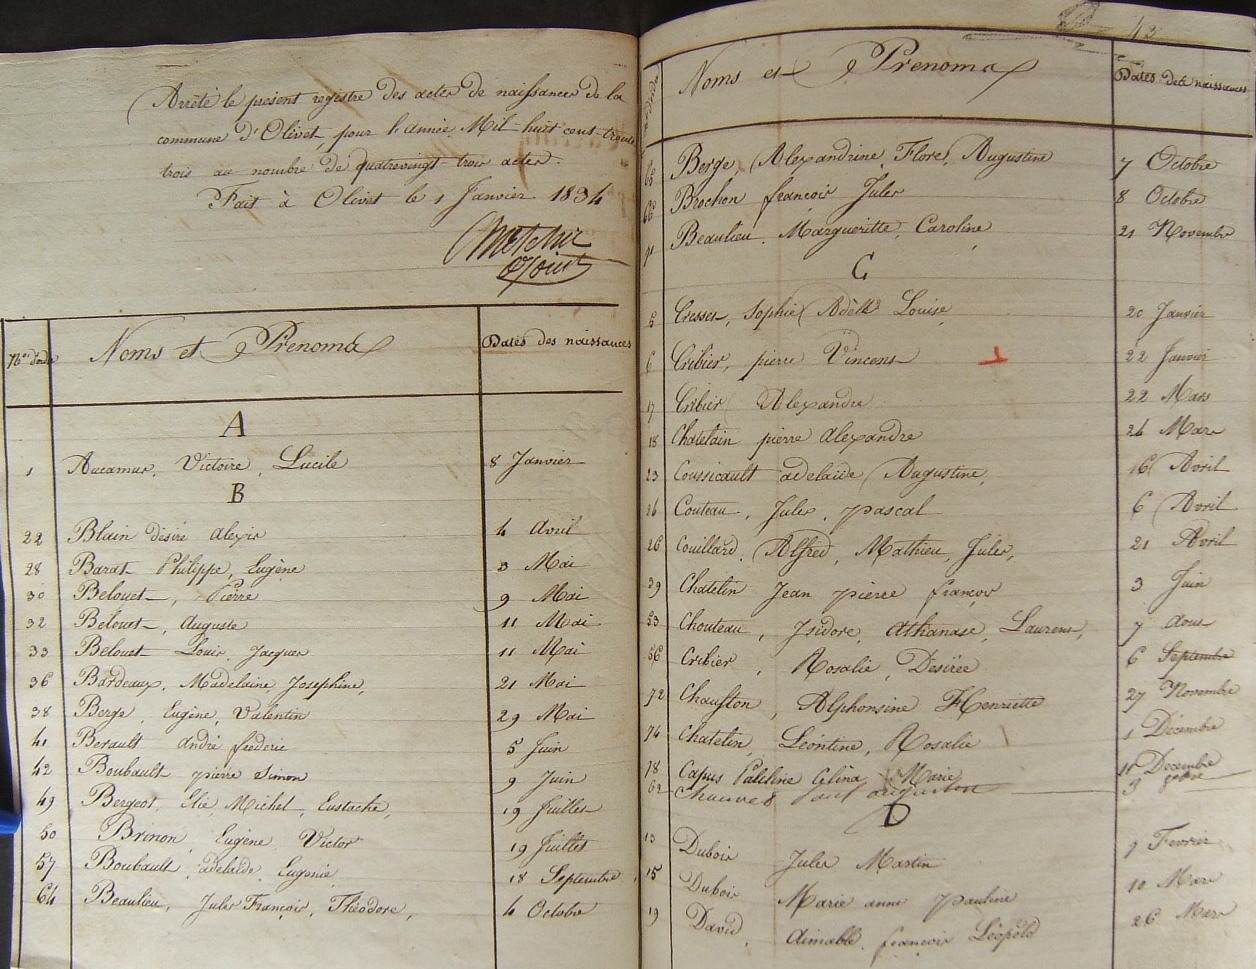 Arrêté le présent registre des actes de naissances de la
commune d'Olivet, pour l'année Mil huit cent trente
trois au nombre de quatrevingt trois actes.
Fait à Olivet le 1 Janvier 1834
Nos d'ordre Noms et Prenoms Dates des naissances
A
1 Aucamus, Victoire, Lucile 8 Janvier
B
22 Blain désiré alexis 4 Avril
28 Barat Philippe, Eugène 3 Mai
30 Belouet, Pierre 9 Mai
32 Belouet, Auguste 11 Mai
33 Belouet Louis Jacques 11 Mai
36 Bardeaux, Madelaine, Josephine, 21 Mai
38 Berge, Eugène, Valentin 29 Mai
41 Berault andré fréderic 5 Juin
42 Boubault pierre Simon 9 Juin
49 Bergeot, Elie, Michel, Eustache, 19 Juillet
50 Brinon, Eugène Victor 19 Juillet
57 Boubault, adelaide, Eugenie 18 Septembre
64 Beaulieu, Jules François, Théodore, 4 Octobre
43
Noms et Prenoms Dates des naissances
65 Berge, Alexandrine Flore, Augustine 7 Octobre
66 Brochon françois Jules 8 Octobre
71 Beaulieu, Margueritte, Caroline 21 Novembre
C
5 Cresses, Sophie Adèle Louise 20 Janvier
6 Cribier, pierre Vincent 22 Janvier
17 Cribier Alexandre 22 Mars
18 Chatelain pierre alexandre 24 Mars
23 Coussicault adelaide Augustine, 16 Avril
26 Couteau, Jules, pascal 6 Avril
26 Couillard, Alfred, Mathieu, Jules, 21 Avril
39 Chatelin Jean pierre françois 3 Juin
53 Chouteau, Isidore, Athanase, Laurent, 7 Aout
56 Cribier, Rosalie, Désirée 6 Septembre
72 Chaufton, Alphonsine Henriette 27 Novembre
74 Chatelin, Léontine, Rosalie 1 Décembre
78 Capus Célina Marie Décembre
62
D
13 Dubois Jules Martin 9 Fevrier
15 Dubois Marie anne pauline 10 Mars
19 David, Aimable, françois Léopold 26 Mars